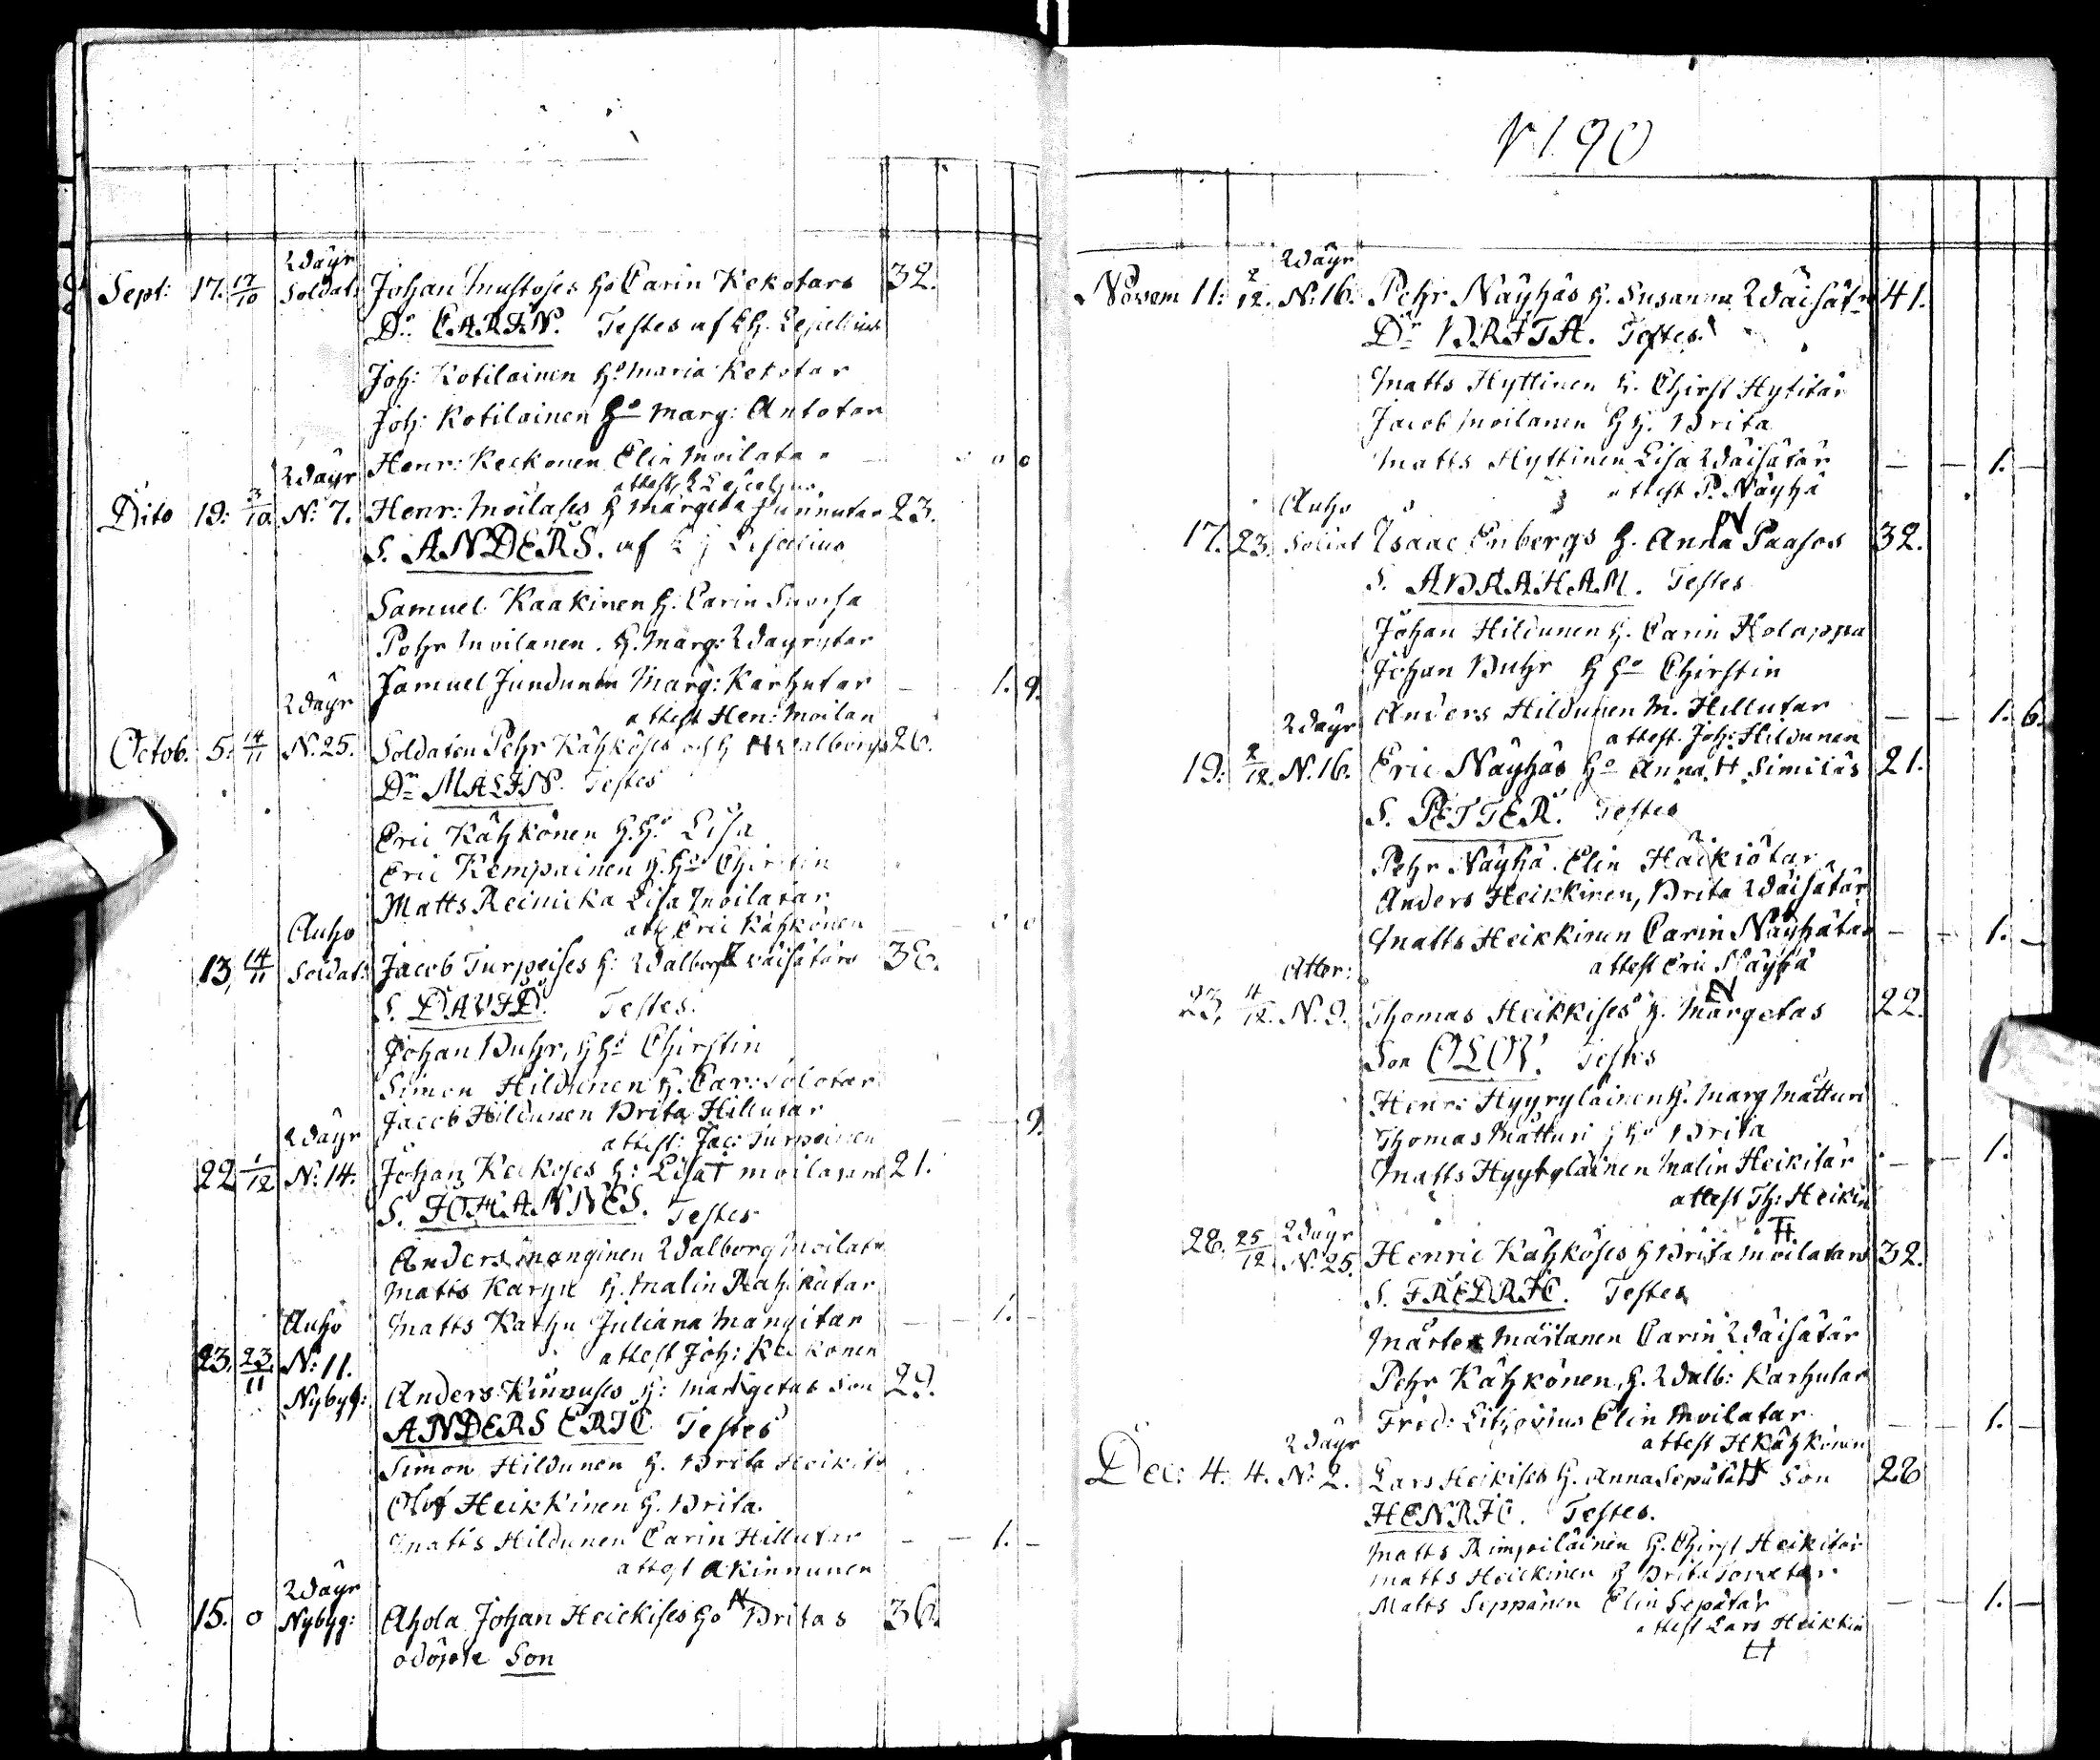 Wäyr
Sept: 17. 17/10 Soldat: Johan Mustoses ho Carin Kekotars 32.
Dr CARIN. Testes af
Joh: Kotilainen ho Maria Kekotar
Joh: Kotilainen ho Marg: Antotar
Henr: Keckonen Elin Moilatar
Wäyr attest
Dito 19: 3/10 N: 7. Henr: Moilases h Margeta 23.
S. ANDERS. af
Samuel Kaakinen h. Carin
Pehr Moilanen. h. Marg: Wäyrytar
Samuel Jundunen Marg: Karhutar - 1. 9.
Wäyr attest Hen: Moilan
Octob. 5. 14/11 N. 25. Soldaten Pehr Kähköses och h Walborgs 26.
Dr MALIN. Testes
Eric Kähkönen h. ho Lisa
Eric Kempainen h. ho Chirstin
Matts Reinicka Lisa Moilatar
Auho att Eric Kähkönen
13, 14/11 Soldat: Jacob Turpeises h: Walborg Wäisätärs 38.
S. DAVID. Testes.
Johan Buhr, h ho Chirstin
Simon Hildunen h. Car:
Jacob Hildunen Brita Hillutar 9.
Wäyr attest: Jac: Turpeinen
22 1/12 N: 14. Johan Keckoses h: Lisa Moilatars 21.
S. JOHANNES. Testes
Anders Manginen Walborg Moilatr
Matts Karyn h. Malin
Auho Matts Karhu Juliana Mangitar - - 1. -
attest Joh: Keckonen
23. 23/11 N: 11.
Nybyg: Anders Kinnuses h: Margetas Son 29.
ANDERS ERIC Testes
Simon Hildunen h. Brita Heikit
Olof Heikkinen h. Brita.
Matts Hildunen Carin Hillutar - - 1. -
attest A Kinnunen
Wäyr
15. 0 Nybyg: Ahola Johan Heickises ho Britas 36.
odöpte Son
1790
Wäyr
Novem 11: 2/12. N: 16. Pehr Näyhäs h. Susanna Wäisät 41.
Dr BRITA. Testes
Matts Hyttinen h. Chirst Hytitär
Jacob Moilanen h h. Brita
Matts Hyttinen Lisa Wäisätär - - 1. -
attest P. Näyhä
Auho
17. 23 Soldat Isaac Enbergs h. Anna Paasos 32.
S. ABRAHAM. Testes
Johan Hildunen h. Carin Holappa
Johan Buhr h ho Chirstin
Anders Hildunen M. Hillutar - - 1. 6.
Wäyr attest. Joh: Hildunen
19: 2/12. N. 16. Eric Näyhäs ho Anna Similäs 21.
S. PETTER. Testes
Pehr Näyhä. Elin
Anders Heikkinen, Brita Wäisätär
Matts Heikkinen Carin Näyhätär - - 1. -
attest Eric Näyhä
Atter:
23, 4/12. N. 9. Thomas Heikkises h. Margetas 22.
Son OLOV. Testes
Henr: Hyyryläinen h. Marg Matturi
Thomas Matturi h ho Brita
Matts Hyyryläinen Malin Heikitär - - 1.
attest Th: Heikin
Wäyr
28. 25/12 N. 25. Henric Kähköses h Brita Moilatars 32.
S. FREDRIC. Testes
Mårten Märtanen Carin Wäisätär
Pehr Kähkönen, h. Walb: Karhutar
Fred: Lithovius Elin Moilatar - 1. -
Wäyr attest H Kähkönen
Dec: 4. 4. N: 2. Lars Heikises h. Anna Sepätär Son 28
HENRIC. Testes.
Matts Rimpiläinen h. Chirst Heikitär
Matts Heickinen h Brita
Matts Seppänen Elin Sepätär - - 1. -
attest Lars Heikkin